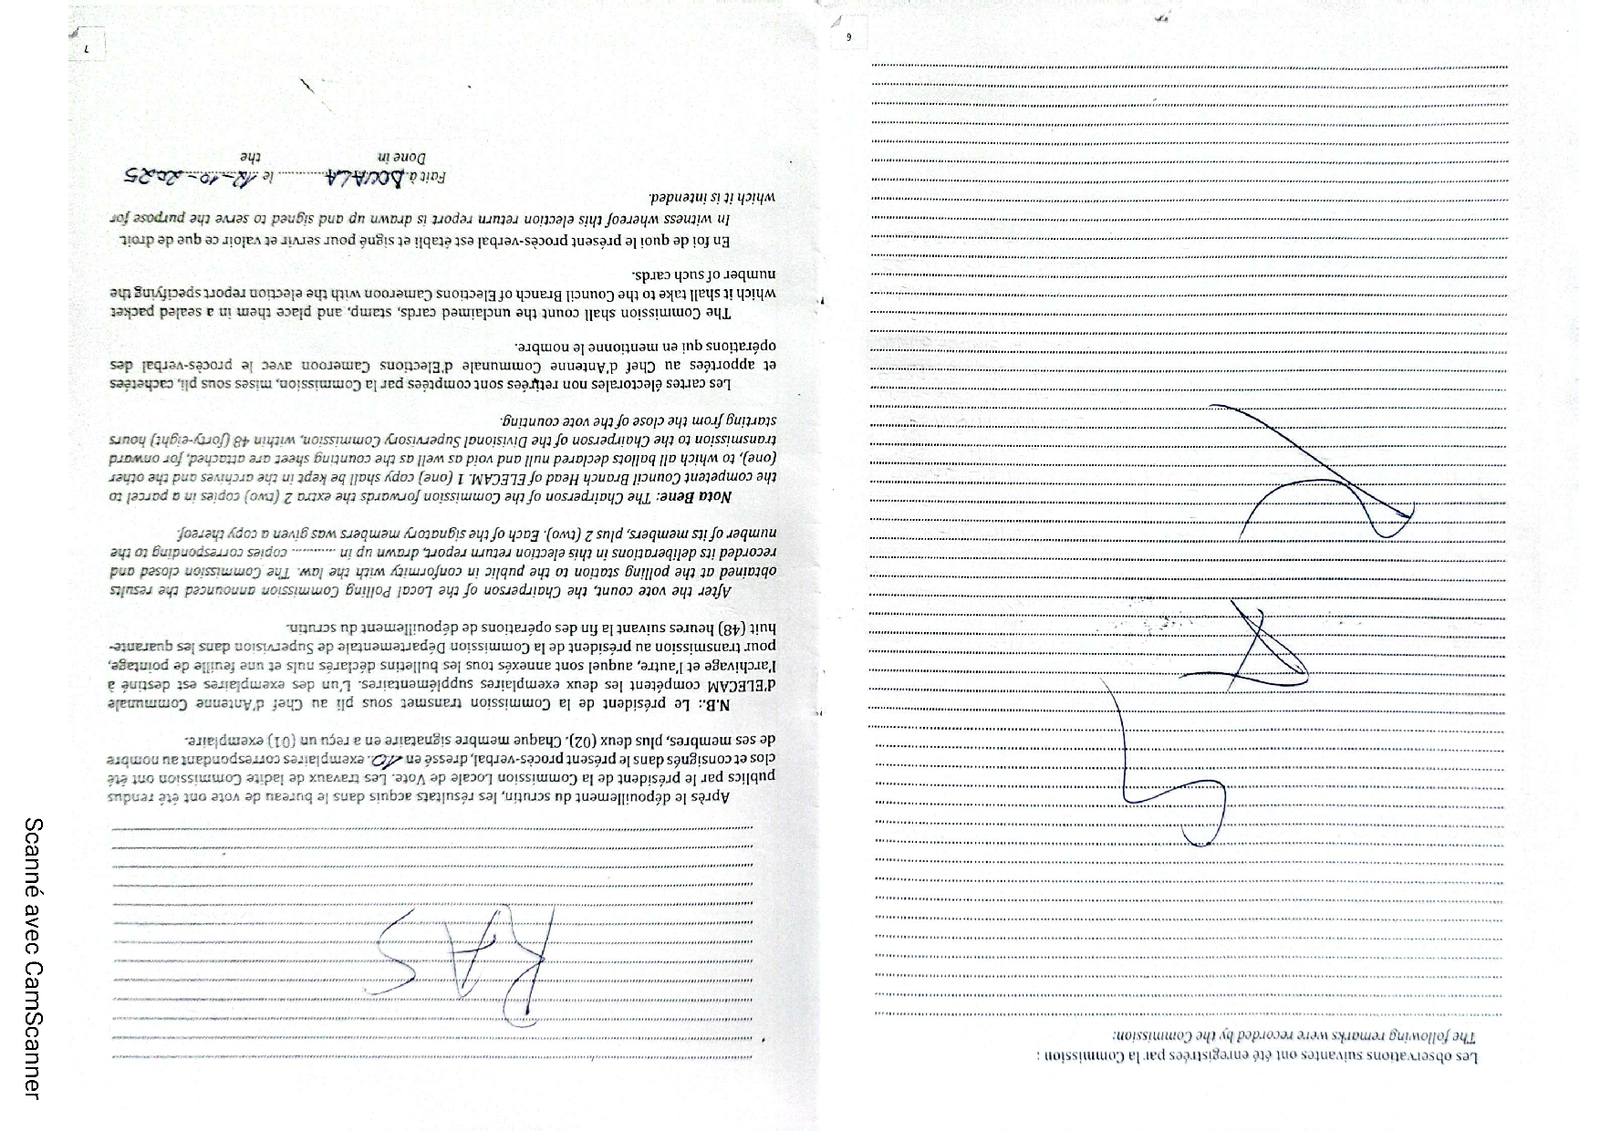 6
Les observations suivantes ont été enregistrées par la Commission :
The following remarks were recorded by the Commission:
RAS
7
RAS
Après le dépouillement du scrutin, les résultats acquis dans le bureau de vote ont été rendus
publics par le président de la Commission Locale de Vote. Les travaux de ladite Commission ont été
clos et consignés dans le présent procès-verbal, dressé en 10. exemplaires correspondant au nombre
de ses membres, plus deux (02). Chaque membre signataire en a reçu un (01) exemplaire.
N.B.: Le président de la Commission transmet sous pli au Chef d'Antenne Communale
d'ELECAM compétent les deux exemplaires supplémentaires. L'un des exemplaires est destiné à
l'archivage et l'autre, auquel sont annexés tous les bulletins déclarés nuls et une feuille de pointage,
pour transmission au président de la Commission Départementale de Supervision dans les quarante-
huit (48) heures suivant la fin des opérations de dépouillement du scrutin.
After the vote count, the Chairperson of the Local Polling Commission announced the results
obtained at the polling station to the public in conformity with the law. The Commission closed and
recorded its deliberations in this election return report, drawn up in ........... copies corresponding to the
number of its members, plus 2 (two). Each of the signatory members was given a copy thereof.
Nota Bene: The Chairperson of the Commission forwards the extra 2 (two) copies in a parcel to
the competent Council Branch Head of ELECAM. 1 (one) copy shall be kept in the archives and the other
(one), to which all ballots declared null and void as well as the counting sheet are attached, for onward
transmission to the Chairperson of the Divisional Supervisory Commission, within 48 (forty-eight) hours
starting from the close of the vote counting.
Les cartes électorales non retirées sont comptées par la Commission, mises sous pli, cachetées
et apportées au Chef d'Antenne Communale d'Elections Cameroon avec le procès-verbal des
opérations qui en mentionne le nombre.
The Commission shall count the unclaimed cards, stamp, and place them in a sealed packet
which it shall take to the Council Branch of Elections Cameroon with the election report specifying the
number of such cards.
En foi de quoi le présent procès-verbal est établi et signé pour servir et valoir ce que de droit.
In witness whereof this election return report is drawn up and signed to serve the purpose for
which it is intended.
Fait à DOUALA le 12-10-2025
Done in the
Scanné avec CamScanner